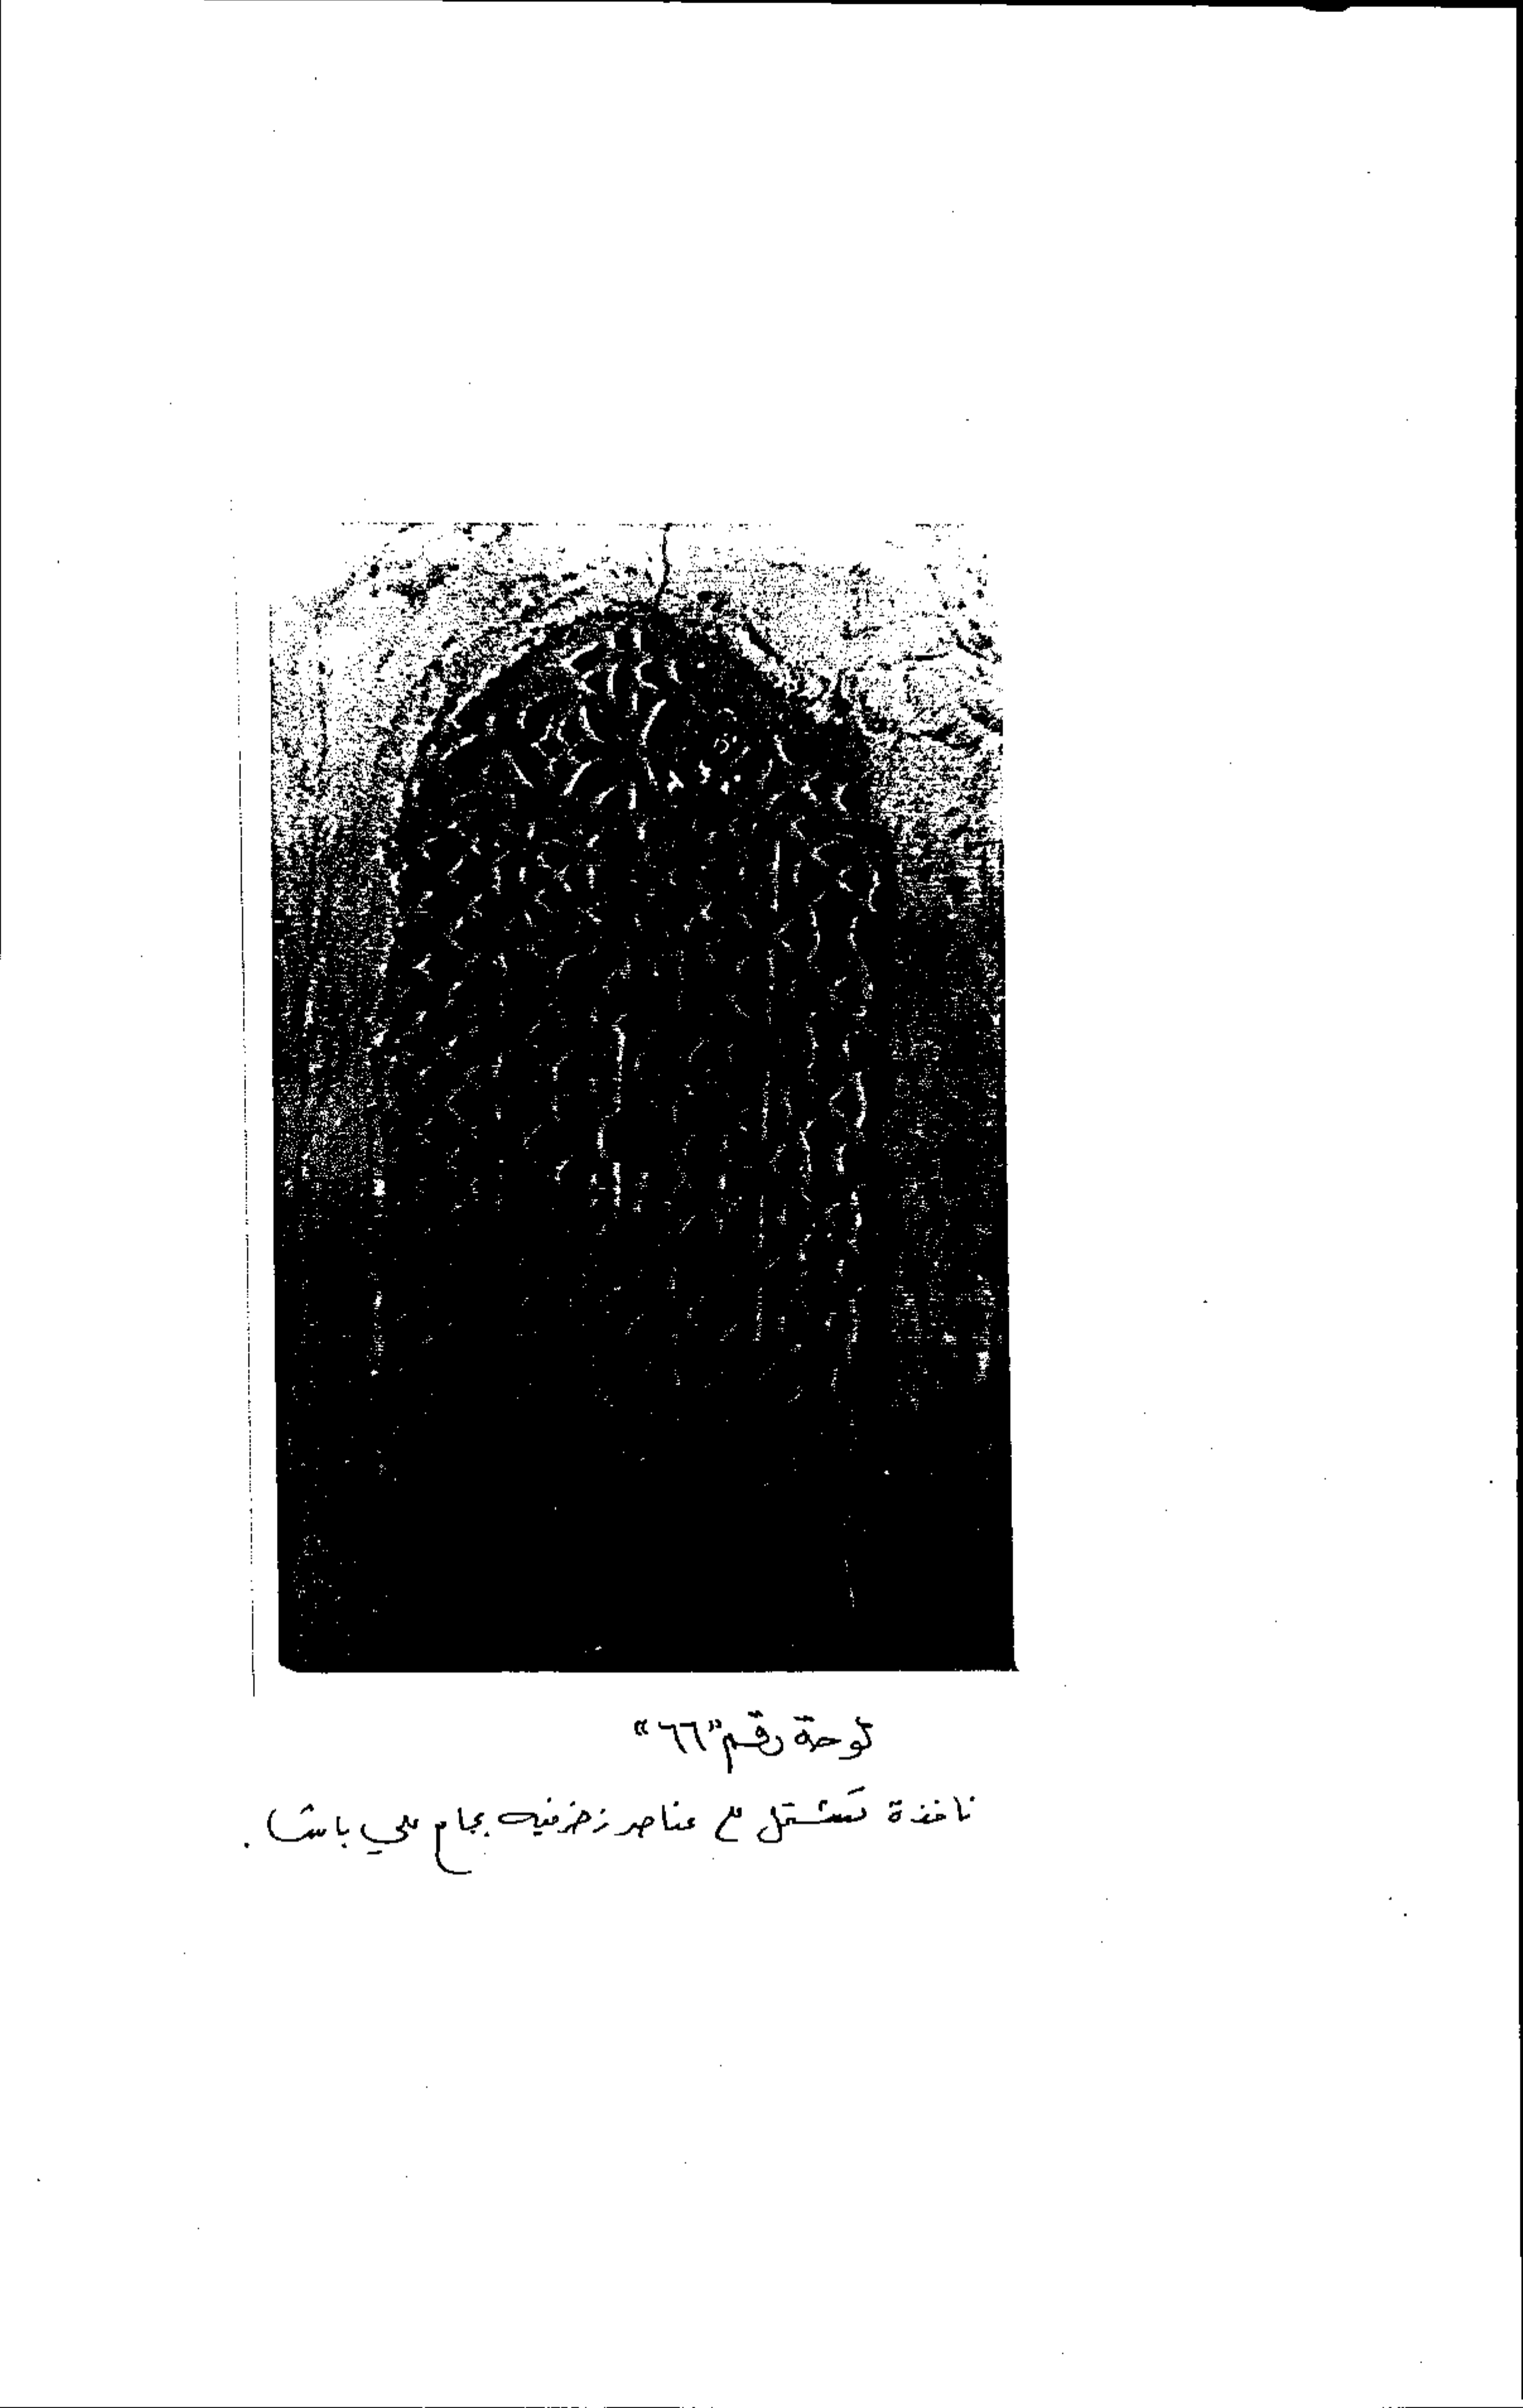 لوحة رقم "٦٦"
نافذة تشتمل على عناصر زخرفيه بجامع علي باشا.